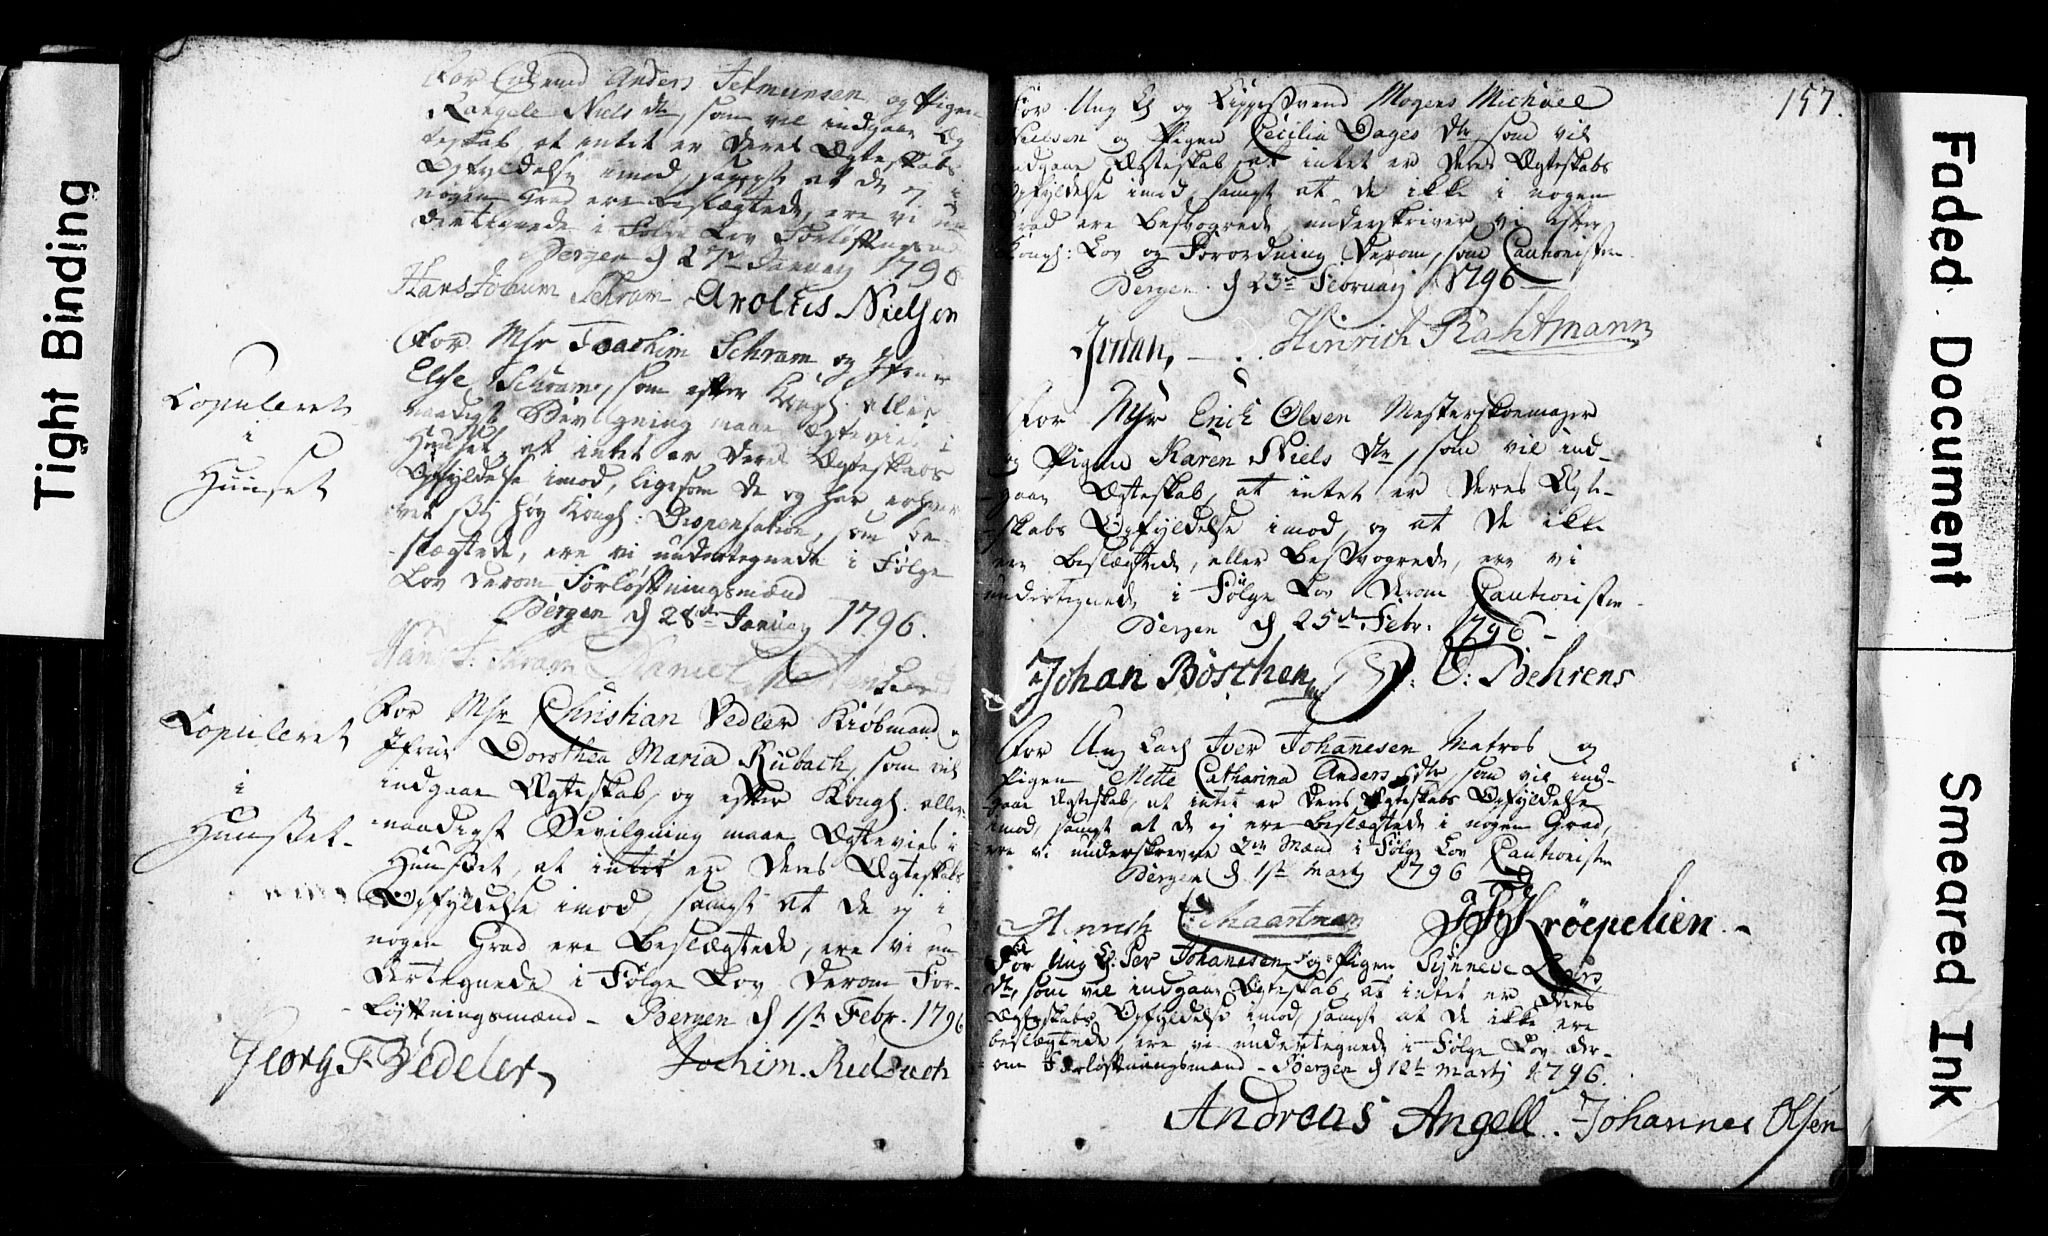 Tight Binding
For Enkemd Anders Jetmundsen og Pigen
Rangele Niels dtr, som vil indgaae Æg
teskab, at intet er deres Ægteskabs
Opfyldelse imod, samt at de ej i
nogen Grad ere beslægtede, ere vi un
dertegnede i Følge Lov Forløftningsmænd
Bergen d 27de January 1796
Hans Jochum Schram Aroldus Nielsen
For Msr Joachim Schram og Jfrue
Else Schram, som efter Kongl. aller
naadigst Bevilgning maae Ægtevies i
Huuset, at intet er deres Ægteskabs
Opfyldelse imod, ligesom de og har erhver
vet sig høy Kongl: Dispensation, som be
slægtede, ere vi undertegnede i Følge
Lov derom Forløftningsmænd
Bergen d 28de January 1796.
Copuleret
i
Huuset
Hans J. Schram Daniel
For Msr Christian Vedler Kiøbmand og
Jfrue Dorothea Maria Rubach, som vil
indgaae Ægteskab, og efter Kongl. aller
naadigst Bevilgning maae Ægtevies i
Huuset, at intet er deres Ægteskabs
Opfyldelse imod, samt at de ej i
nogen Grad ere beslægtede, ere vi un
dertegnede i Følge Lov derom For-
løftningsmænd - Bergen d 1ste Febr. 1796
Copuleret
i
Huuset.
Georg F. Vedeler Jochim. Rubach
157.
For Ung K og Liggersvend Mogens Michael
Nielsen og Pigen Cecilia Dages dtr, som vil
indgaae Ægteskab, at intet er deres Ægteskabs
Opfyldelse imod, samt at de ikke i nogen
Grad ere besvogrede, underskriver vi efter
Kongl: Lov og Forordning derom, som Cautionister
Bergen d 23de February 1796
Hinrich Rahtmann
For Msr Erich Olsen Mesterskoemager
og Pigen Karen Niels dtr, som vil ind-
gaae Ægteskab, at intet er deres Ægte-
skabs Opfyldelse imod, og at de ikke
ere beslægtede, eller besvogrede, ere vi
undertegnede i Følge Lov derom Cautionister
Bergen d 25de Febr. 1796
Johan Böschen O: Behrens
For Ung Karl Iver Johanesen Matros og
Pigen Mette Catharina Anders dtr, som vil ind-
gaae Ægteskab, at intet er deres Ægteskabs Opfyldelse
imod, samt at de ej ere beslægtede i nogen Grad,
ere vi underskrevne Mænd i Følge Lov Cautionister
Bergen d 1ste Marty 1796
Hinrich Schaartman Krøepelien.
For Ung K. Per Johanesen og Pigen Synneve Lars
dtr, som vil indgaae Ægteskab, at intet er deres
Ægteskabs Opfyldelse imod, samt at de ikke ere
beslægtede, ere vi undertegnede i Følge Lov der-
om Forløftningsmænd - Bergen d 12te Marty 1796.
Andreas Angell. Johannes Olsen
Faded Document
Smeared Ink